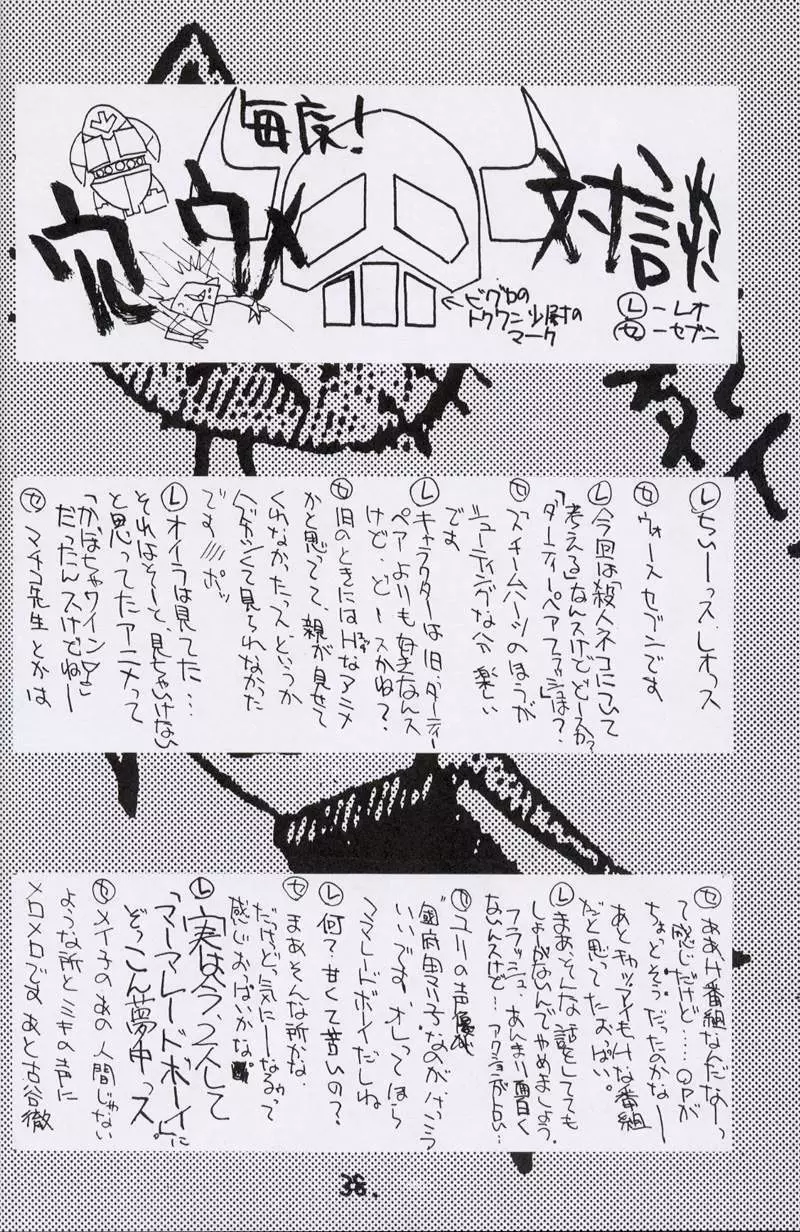 毎度!
ウメ
対談
←ビグロの
トクワン少尉の
マーク
Ⓛ-レオ
㋝-セブン
Ⓛちぃーっス、レオっス
㋝ ウォースセブンです
Ⓛ今回は「殺人ネコについて
考える」なんスけどどースか?
「ダーティーペアフラッシュは?」
㋝ ズチームハーツのほうが
シューティングな分楽しい
です
Ⓛキャラクターは旧、ダーティー
ペアよりも好きなんス
けど、どースかね?
㋝旧のときにはHなアニメ
かと思ってて、親が見せて
くれなかったっス、というか
ハズかしくて見られなかった
です///ポッ
Ⓛオイラは見てた…
それはそーと、見ちゃいけない
と思ってたアニメって
「かぼちゃワイン♡」
だったんスけどねー
㋝ マチコ先生とかは
㋝ ああH番組なんだなーっ
て感じだけど…。OPが
ちょっとそうだったのかなー
あとキャッツアイもHな番組
だと思ってたおっぱい。
Ⓛまあ、そんな話をしてても
しょーがないんでやめましょう。
フラッシュ、あんまり面白く
ないんスけど…アクションが占い…
㋝ ユリの声優が
"國府田マリ子"なのがけっこう
いいです、オレってほら
ママレードボイだしね
Ⓛ何?甘くて苦いの?
㋝まあそんな所かな。
だけど気にーなるゥって
感じおっぱいかな。
Ⓛ「実は今、2人して
「マーアレードボーイ」に
ぞっこん夢中っス
㋝ メイ子のあの人間じゃない
ような所とミキの声に
メロメロです あと古谷徹
38.